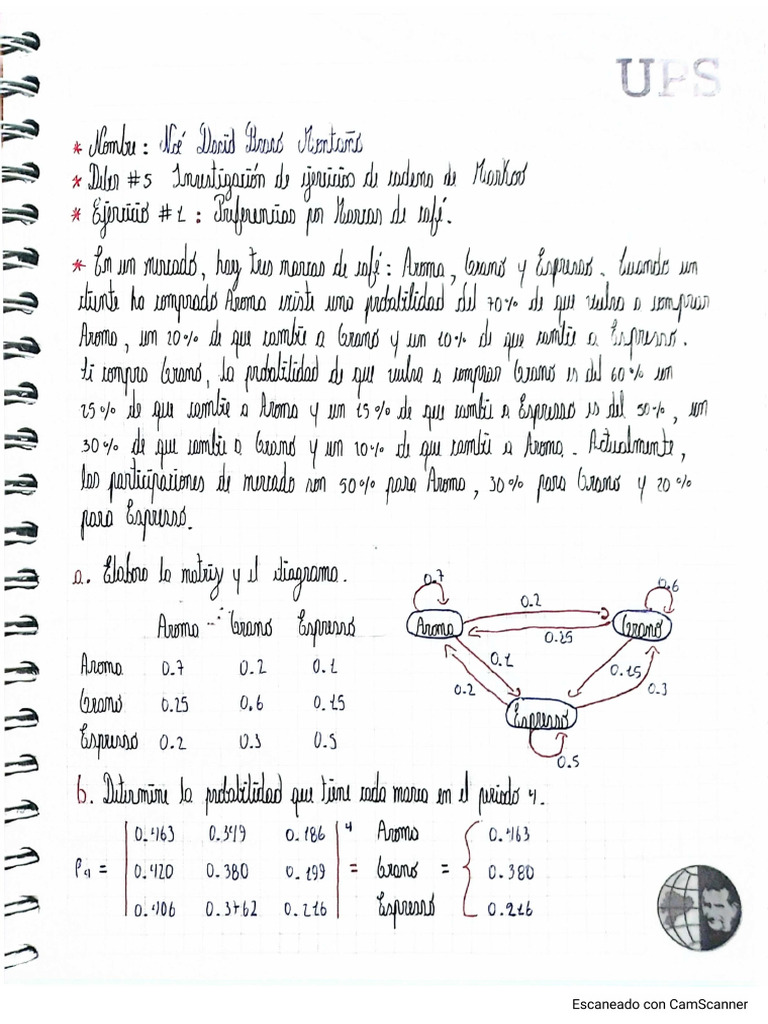 UPS
* Nombre: Noé David Bravo Montaño
* Deber #5 Investigación de ejercicios de cadena de Markov
* Ejercicio #1 : Preferencias por Marcas de café.
* En un mercado, hay tres marcas de café: Aroma, Grano y Espresso. Cuando un
cliente ha comprado Aroma existe una probabilidad del 70% de que vuelva a comprar
Aroma, un 20% de que cambie a Grano y un 10% de que cambie a Espresso.
Si compra Grano, la probabilidad de que vuelva a comprar Grano is del 60% un
25% de que cambie a Aroma y un 15% de que cambie a Espresso is del 50%, un
30% de que cambie a Grano y un 20% de que cambie a Aroma. Actualmente,
las participaciones de mercado son 50% para Aroma, 30% para Grano y 20%
para Espresso.
a. Elabora la matriz y el diagrama.
Aroma Grano Espresso
Aroma 0.7 0.2 0.1
Grano 0.25 0.6 0.15
Espresso 0.2 0.3 0.5
0.7 0.6
0.2
Aroma Grano
0.25
0.1 0.15
0.2 0.3
Espresso
0.5
b. Determine la probabilidad que tiene cada marca en el periodo 4.
0.463 0.349 0.186 4 Aroma 0.463
P4 = 0.420 0.380 0.199 = Grano = 0.380
0.406 0.3762 0.216 Espresso 0.216
Escaneado con CamScanner